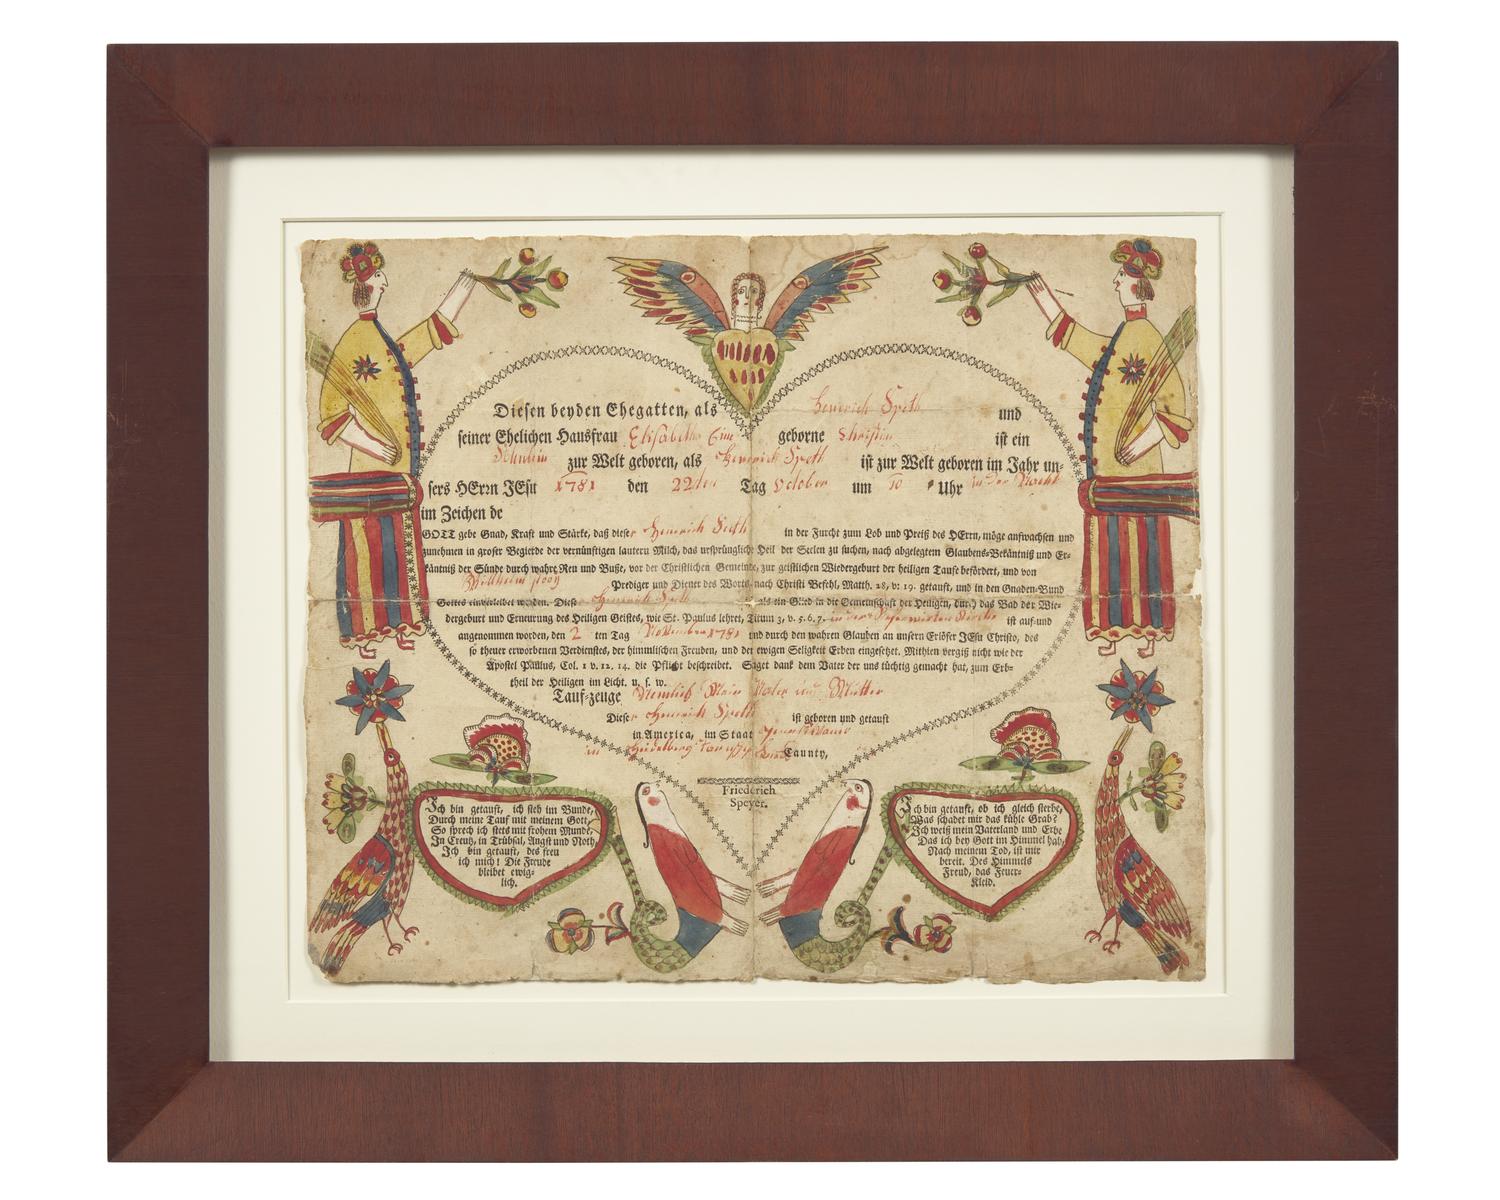 Diesen beyden Ehegatten, als Henrich Speth und
seiner Ehelichen Hausfrau Elisabetha Eine geborne Christin ist ein
Söhnlein zur Welt geboren, als Henrich Speth ist zur Welt geboren im Jahr un-
sers HErrn JEsu 1781 den 22ten Tag October um 10 Uhr in der Nacht
im Zeichen de
GOTT gebe Gnad, Kraft und Stärke, daß dieser Henrich Speth in der Furcht zum Lob und Preiß des HErrn, möge aufwachsen und
zunehmen in groser Begierde der vernünftigen lautern Milch, das ursprüngliche Heil der Seelen zu suchen, nach abgelegtem Glaubens-Bekäntniß und Er-
käntniß der Sünde durch wahre Reu und Buße, vor der Christlichen Gemeinde, zur geistlichen Wiedergeburt der heiligen Taufe befördert, und von
Willhelm Prediger und Diener des Worts, nach Christi Befehl, Matth. 28, v: 19. getauft, und in den Gnaden-Bund
Gottes einverleibet worden. Diese Henrich Speth als ein Glied in die Gemeinschaft der Heiligen, durch das Bad der Wie-
dergeburt und Erneurung des Heiligen Geistes, wie St. Paulus lehret, Titum 3, v. 5. 6. 7. in der Kirche ist auf- und
angenommen worden, den 2 ten Tag November 1781 und durch den wahren Glauben an unsern Erlöser JEsu Christo, des
so theuer erworbenen Verdienstes, der himmlischen Freuden, und der ewigen Seligkeit Erben eingesetzet. Mithien vergiß nicht wie der
Apostel Paulus, Col. 1 v. 12. 14. die Pflicht beschreibet. Saget dank dem Vater der uns tüchtig gemacht hat, zum Erb-
theil der Heiligen im Licht. u. s. w.
Tauf-zeuge Nemlich Vater und Mutter
Dieser Henrich Speth ist geboren und getauft
in America, im Staat
in Heidelberg Caunty,
Friederich
Speyer.
Ich bin getauft, ich steh im Bunde,
Durch meine Tauf mit meinem Gott,
So sprech ich stets mit frohem Munde,
In Creutz, in Trübsal, Angst und Noth
Ich bin getauft, des freu
ich mich! Die Freude
bleibet ewig-
lich.
Ich bin getauft, ob ich gleich sterbe,
Was schadet mir das kühle Grab?
Ich weiß mein Vaterland und Erbe
Das ich bey Gott im Himmel hab,
Nach meinem Tod, ist mir
bereit. Des Himmels
Freud, das Feuer-
Kleid.